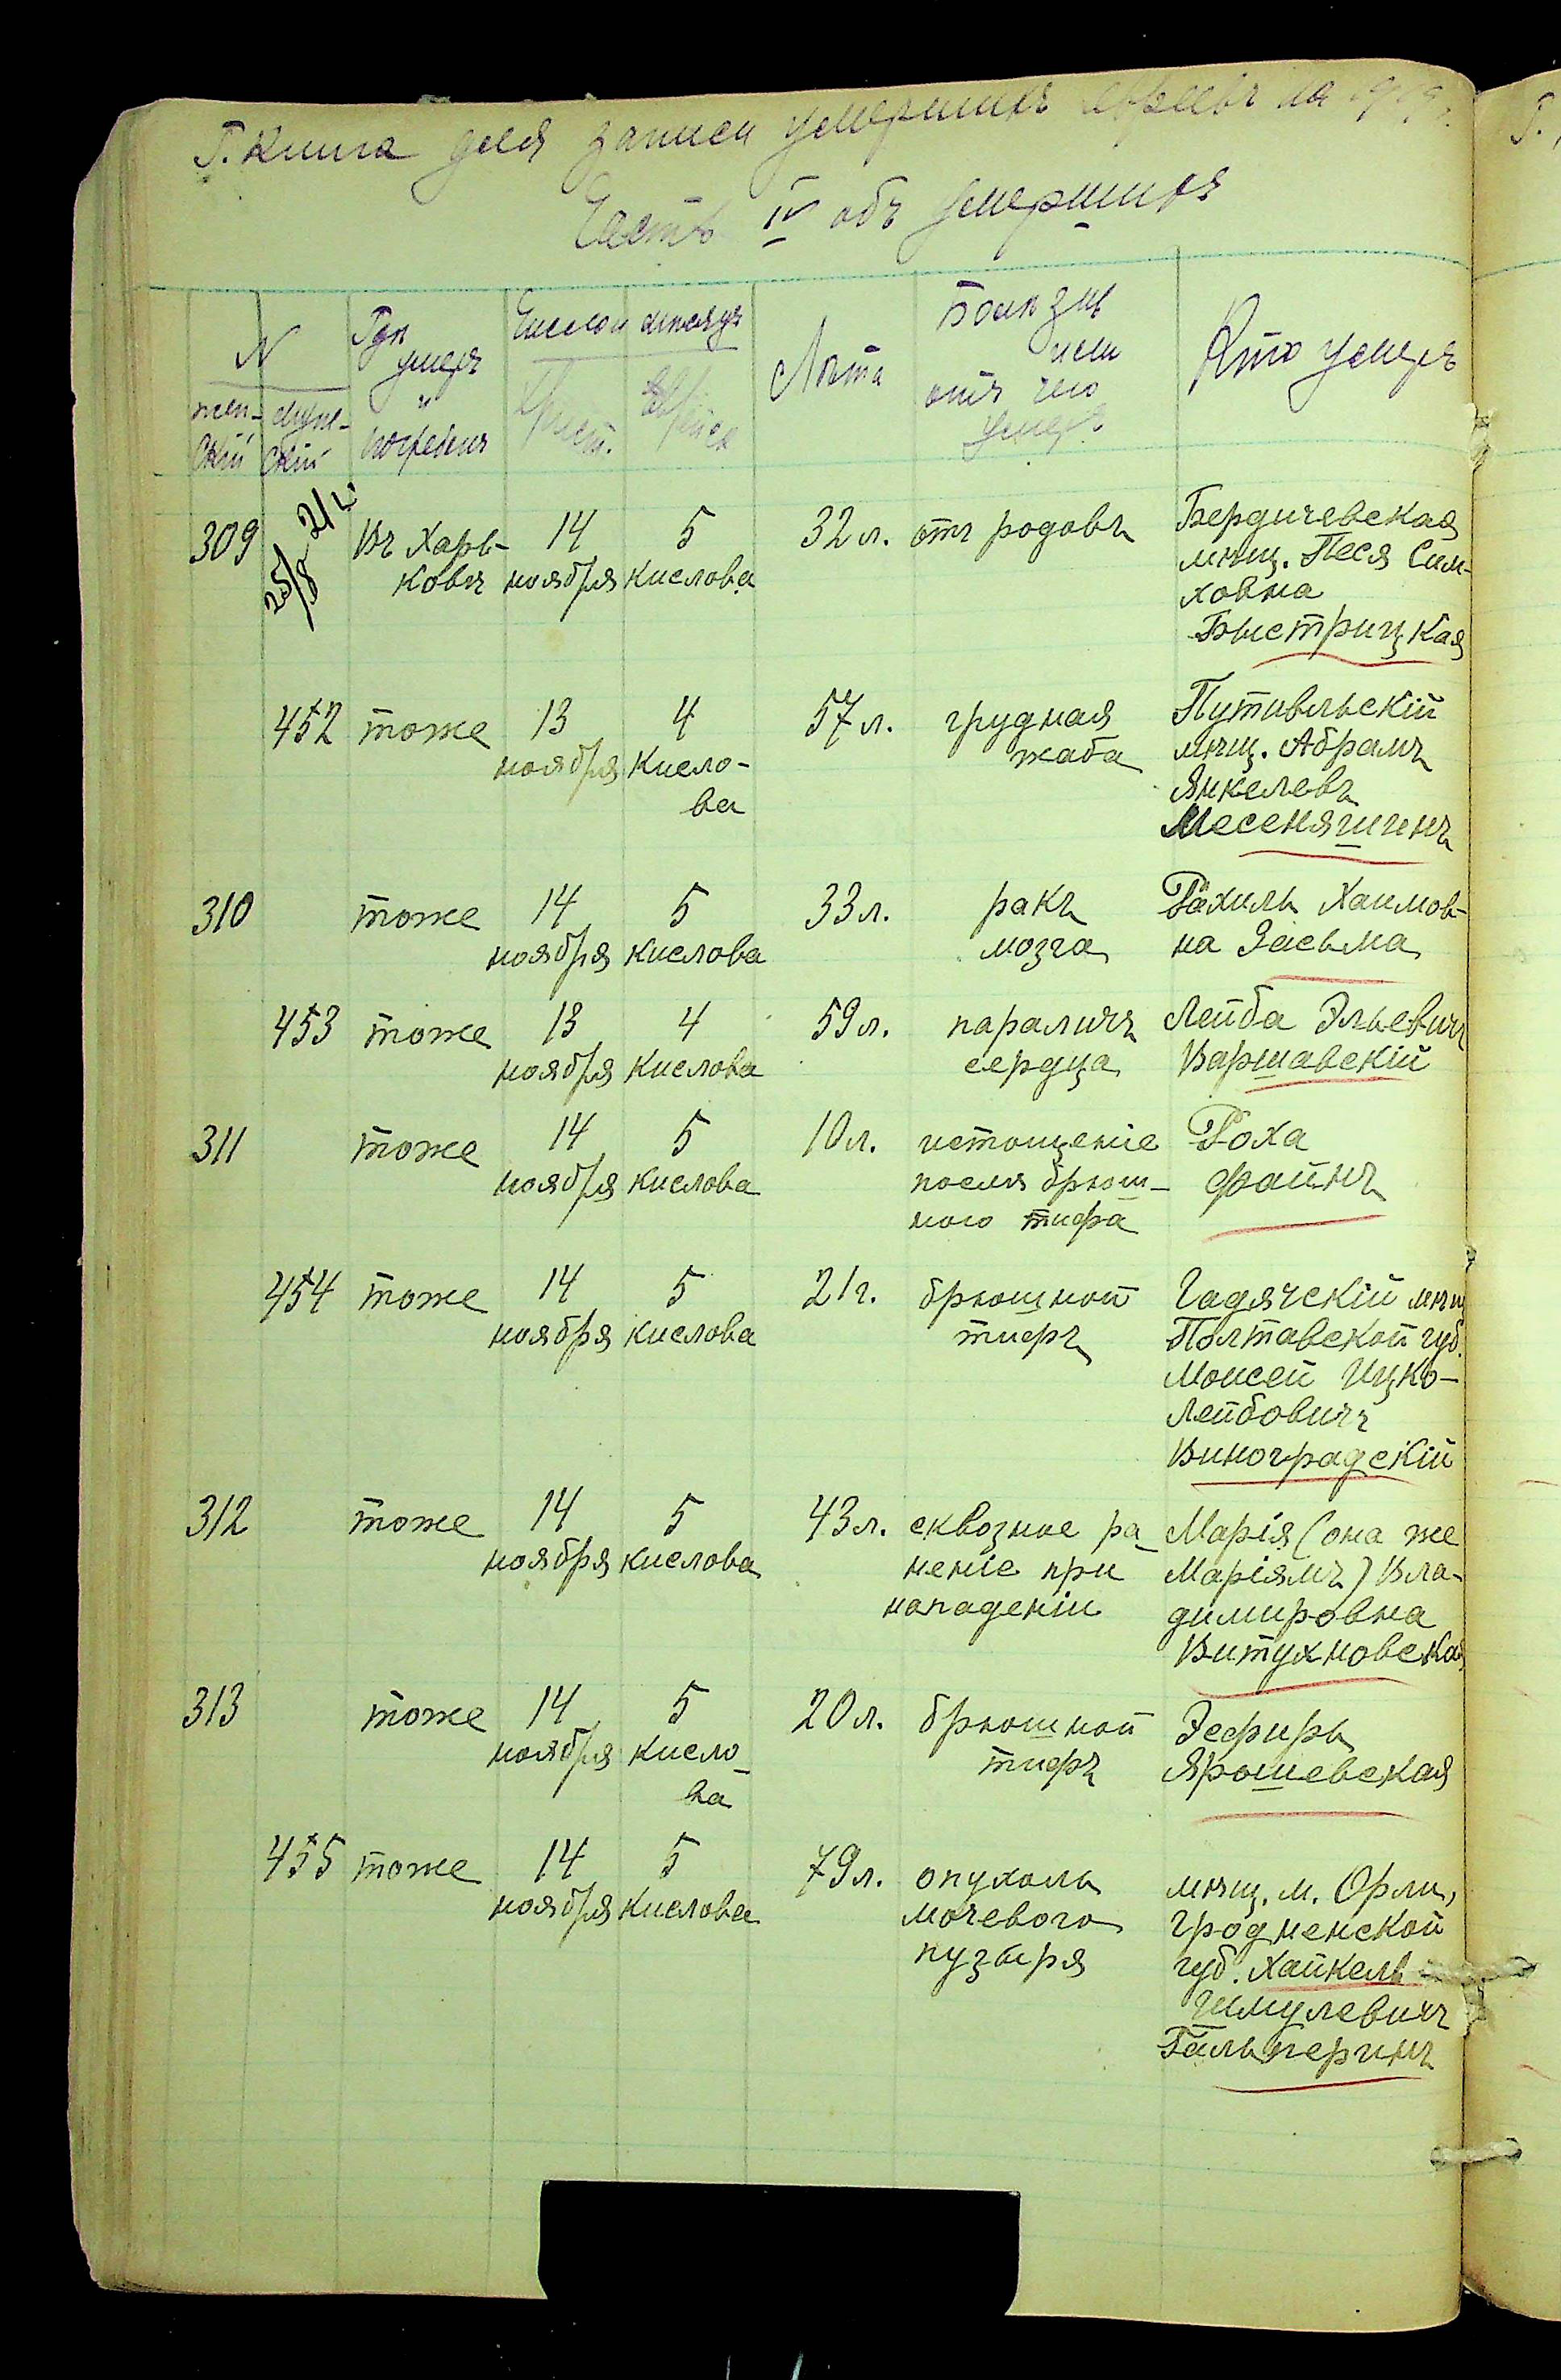 Г. Книга для записи умершихъ евреевъ на 1919 г.
Часть IV объ умершихъ
N
жен-
скій
муж-
ской
Гдѣ
умеръ
и
погребенъ
Число и мѣсяцъ
Христ.
Еврейск
Лѣта
Болѣзнь
или
отъ чего
умеръ
Кто умеръ
309 25/8 Въ Харь- 14 5 32 л. отъ родовъ Бердичевская
ковѣ ноября кислова мѣщ. Песя Сим-
ховна
Быстрицкая
452 тоже 13 4 57 л. грудная Путивльскій
ноября кисло- жаба мѣщ. Абрамъ
ва Янкелевъ
Месеняшинъ
310 тоже 14 5 33 л. ракъ Рахиль Хаимов-
ноября кислова мозга на Засьма
453 тоже 13 4 59 л. параличъ Лейба Эльевичъ
ноября кислова сердца Варшавскій
311 тоже 14 5 10 л. истощеніе Роха
ноября кислова послѣ брюш- Файнъ
ного тифа
454 тоже 14 5 21 г. брюшной Гадячскій мѣщ
ноября кислова тифъ Полтавской губ.
Моисей Ицко-
Лейбовичъ
Виноградскій
312 тоже 14 5 43 л. сквозное ра- Марія (она же
ноября кислова неніе при Маріямъ) Вла-
нападеніи димировна
Витухновская
313 тоже 14 5 20 л. брюшной Эсфирь
ноября кисло- тифъ Ярошевская
ва
455 тоже 14 5 79 л. опухоль мѣщ. м. Орли,
ноября кислова мочевого Гродненской
пузыря губ. Хайкель
Шмулевичъ
Гальперинъ